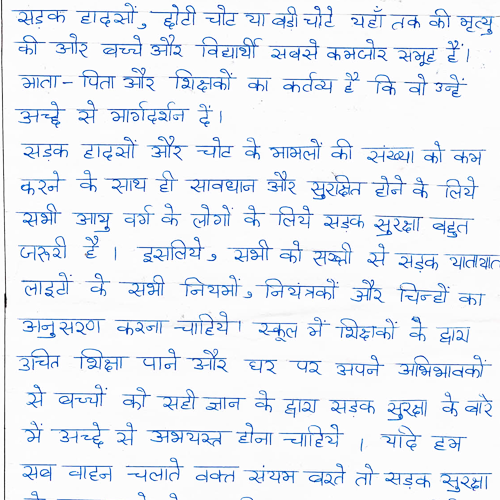 सड़क हादसों, छोटी चोट या बड़ी चोटे यहाँ तक की मृत्यु
की ओर बच्चे और विद्यार्थी सबसे कमजोर समूह हैं।
माता-पिता और शिक्षकों का कर्तव्य है कि वो उन्हें
अच्छे से मार्गदर्शन दें।
सड़क हादसों और चोट के मामलों की संख्या को कम
करने के साथ ही सावधान और सुरक्षित होने के लिये
सभी आयु वर्ग के लोगों के लिये सड़क सुरक्षा बहुत
जरूरी है। इसलिये, सभी को सख्ती से सड़क यातायात
लाइटों के सभी नियमों, नियंत्रकों और चिन्हों का
अनुसरण करना चाहिये। स्कूल में शिक्षकों के द्वारा
उचित शिक्षा पाने और घर पर अपने अभिभावकों
से बच्चों को सही ज्ञान के द्वारा सड़क सुरक्षा के बारे
में अच्छे से अभयस्त होना चाहिये। यदि हम
सब वाहन चलाते वक्त संयम बरते तो सड़क सुरक्षा